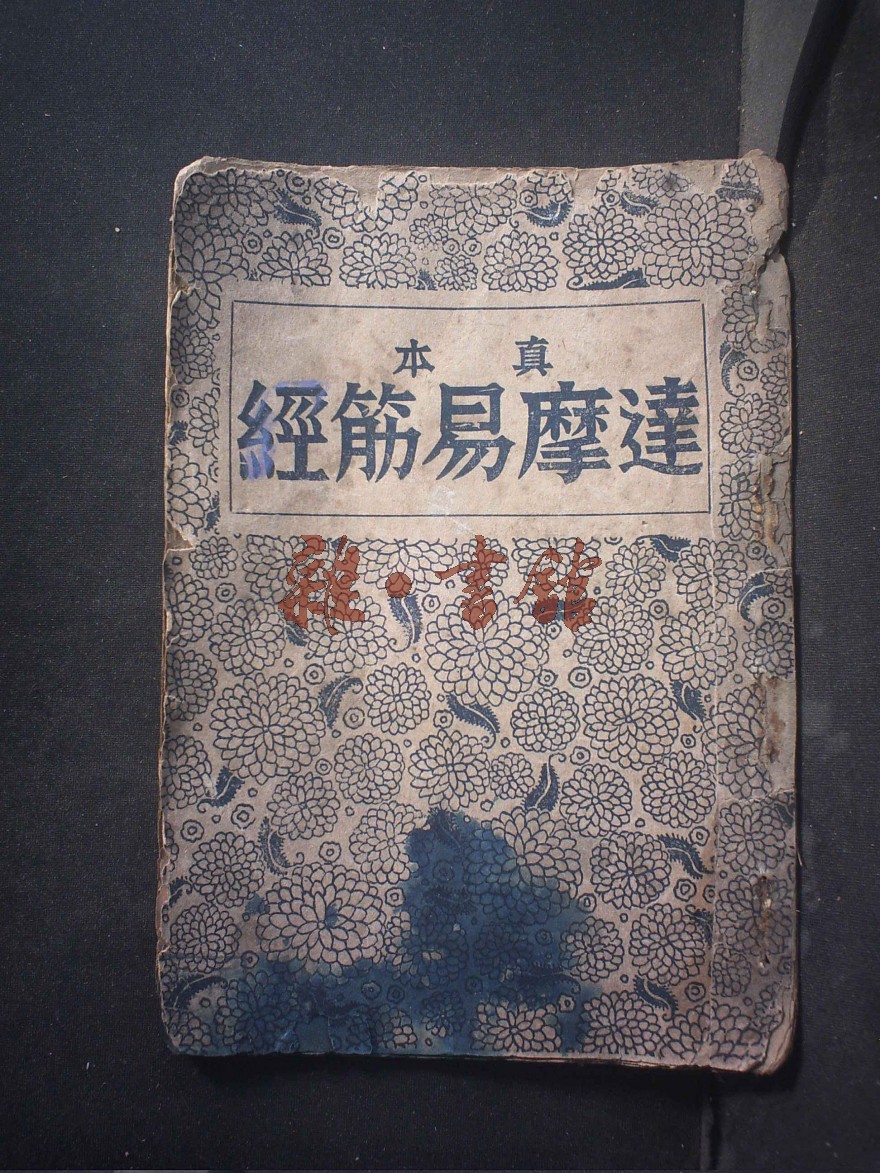 真本
達摩易筋經
雜·書館